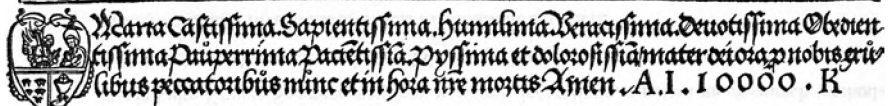 Maria Castissima. Sapientissima. Humilimā. Veracissima. Deuotissima Obedien
tissima Pauperrima Paciētissīa. Pyssima et dolorosissīa/mater dei ora p nobis
libus peccatoribus nunc et in hora nre mortis Amen. A.I. 10000. R